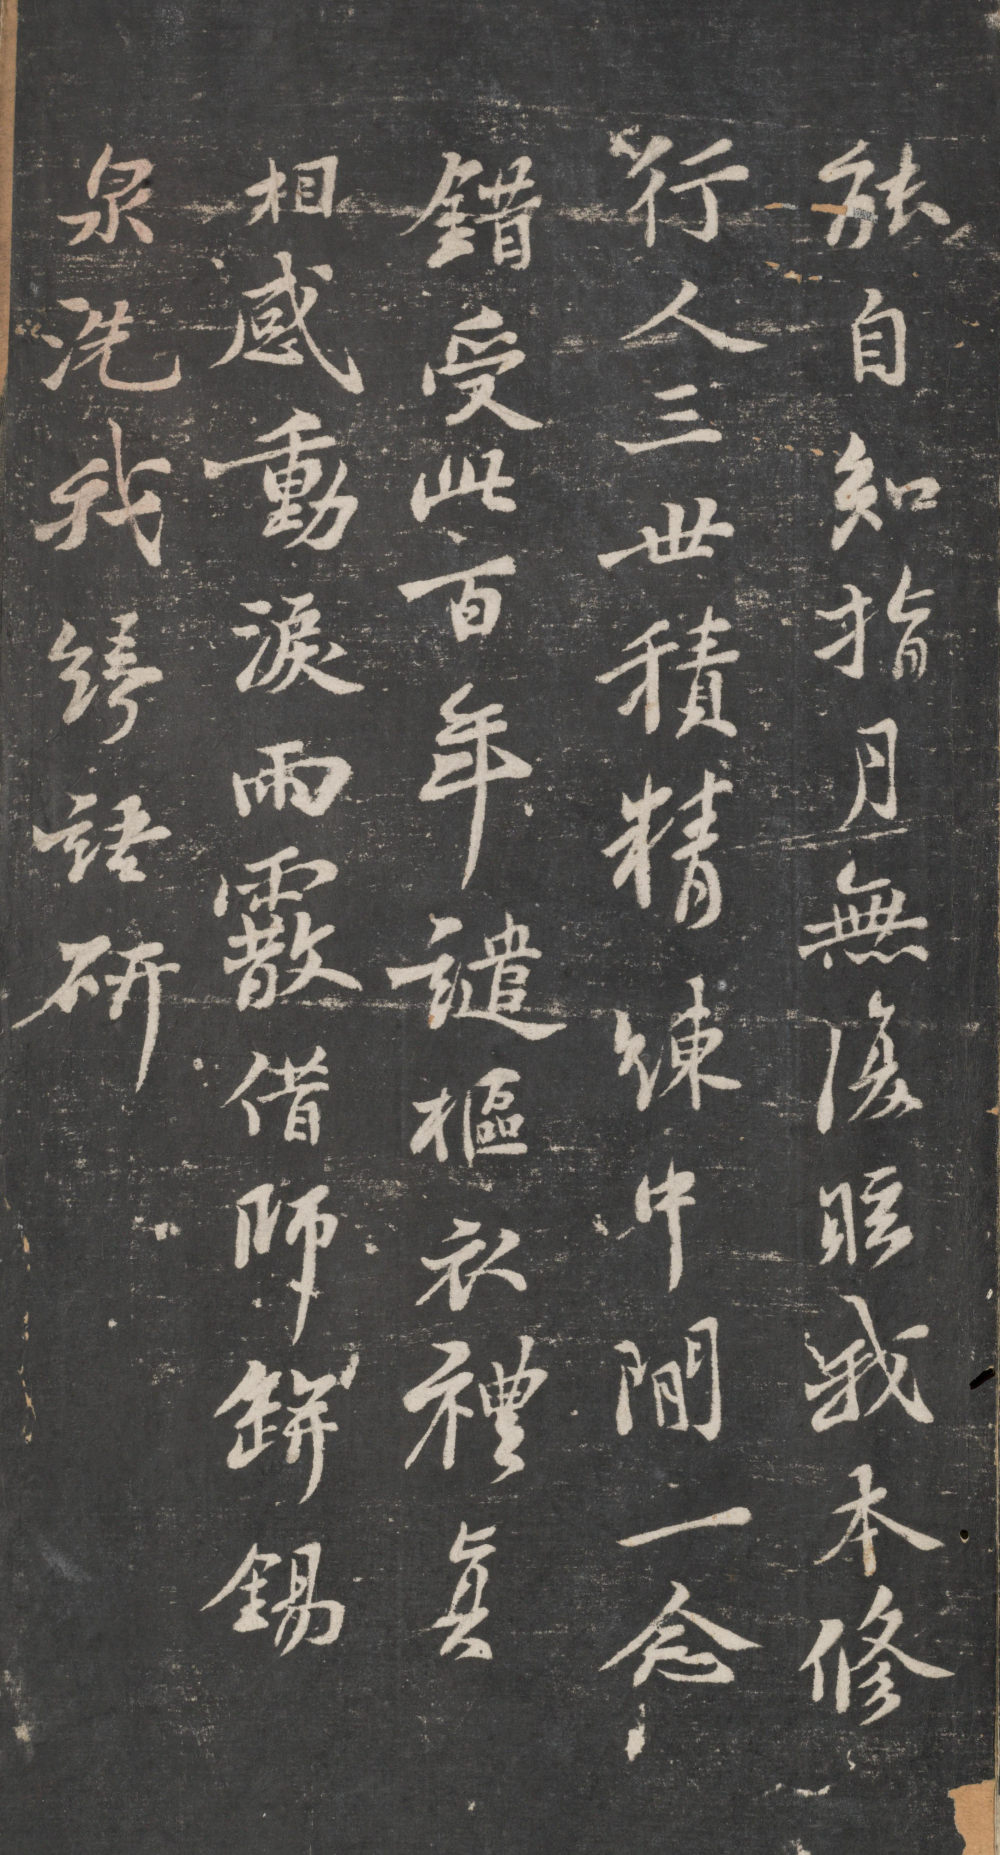 能自知指月無復眩我本修
行人三世積精練中間一念
錯受此百年譴樞衣禮真
相感動淚雨霰借師缾錫
泉洗我綺語研